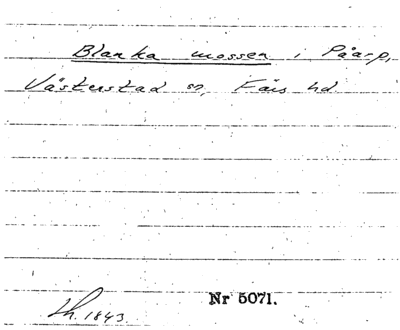 Blanka mossen i Påarp,
Västerstad sn, Färs hd
Nr 5071.
Lh. 1843